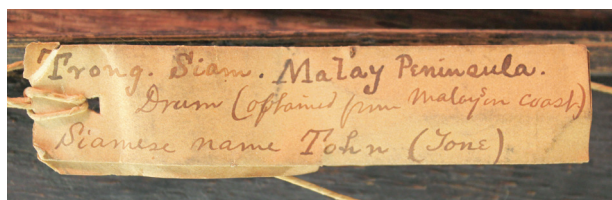 Trong. Siam. Malay Peninsula.
Drum (optained from Malays on coast)
Siamese name Tohn (Tone)